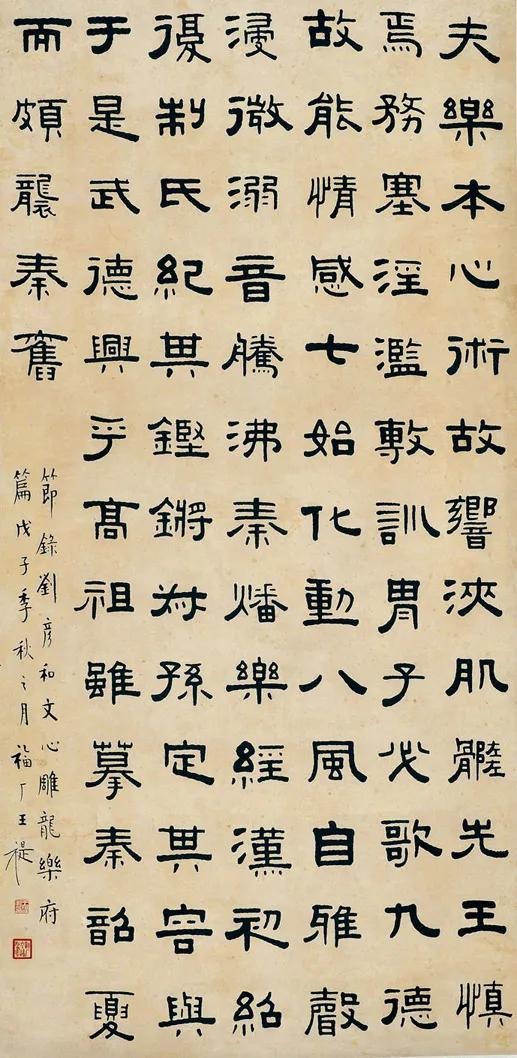 夫樂本心術故響浹肌髓先王慎
焉務塞淫濫敷訓胄子必歌九德
故能情感七始化動八風自雅聲
浸微溺音騰沸秦燔樂經漢初紹
復制氏紀其鏗鏘叔孫定其容與
于是武德興乎高祖雖摹秦韶夏
而頗襲秦舊
節錄劉彥和文心雕龍樂府
篇戊子季秋之月福厂王禔